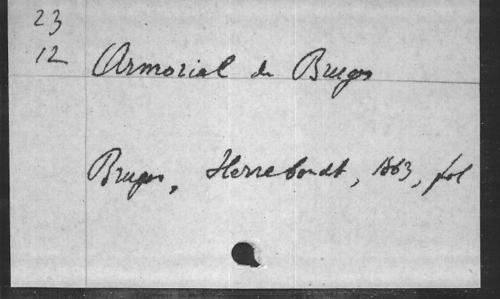 23
12 Armorial de Bruges
Bruges, Herreboudt, 1863, fol